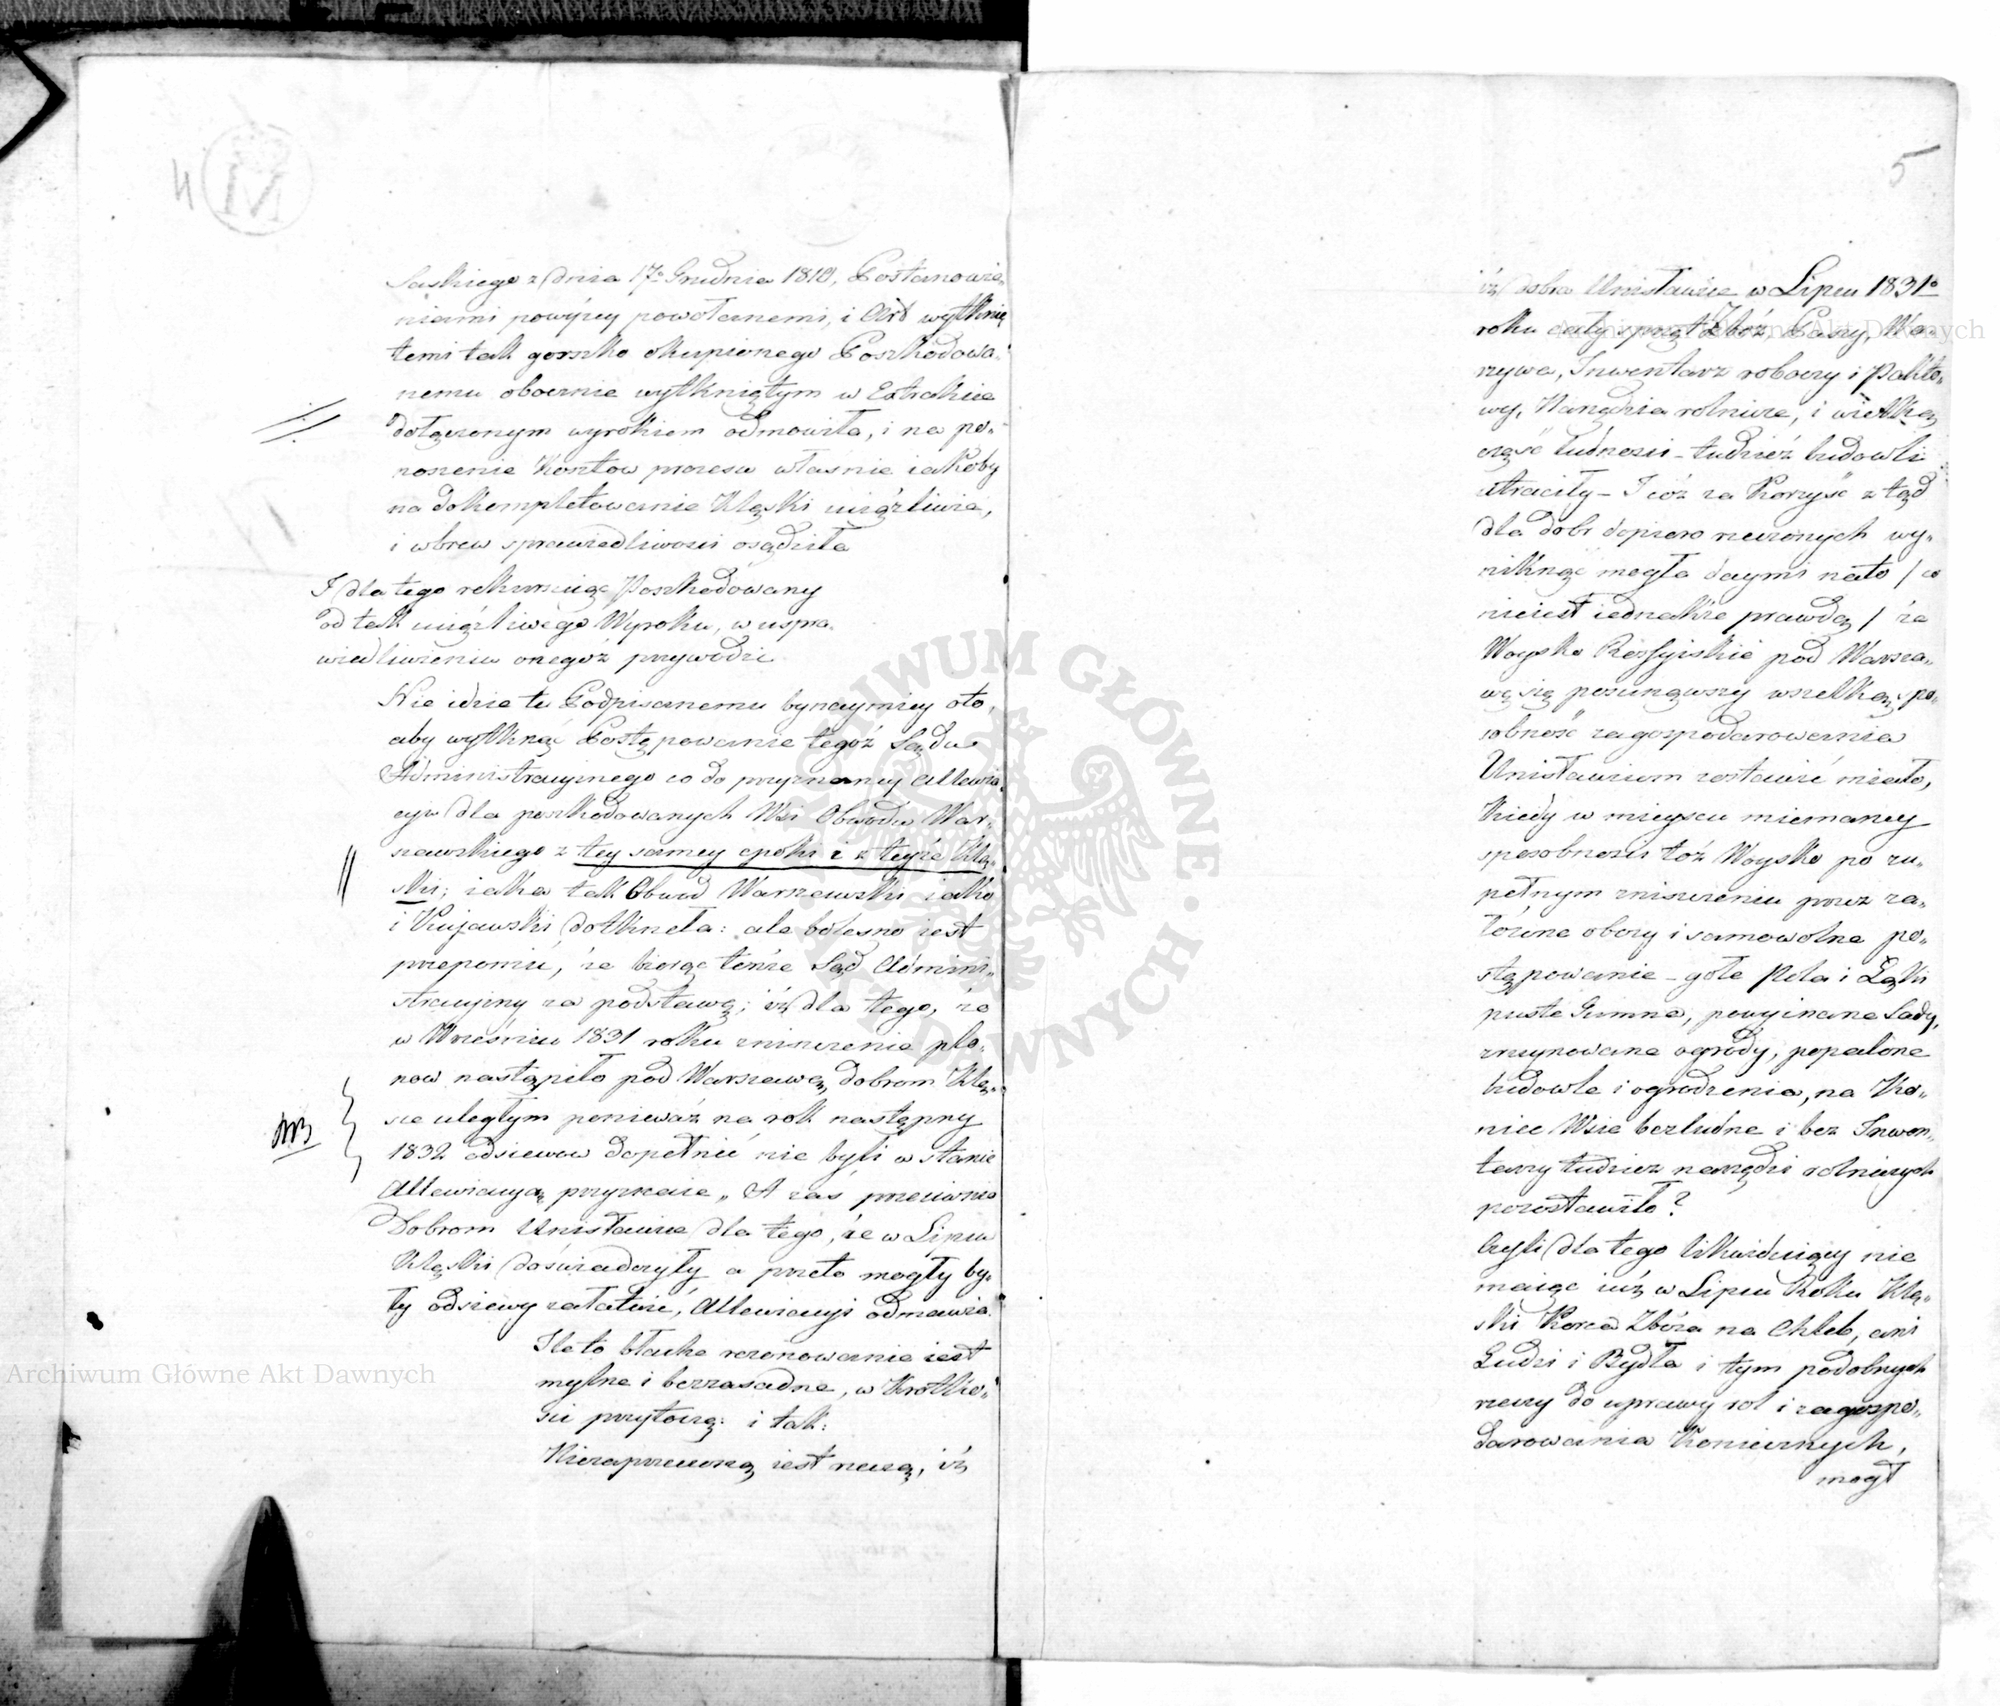 4
Saskiego z dnia 17º Grudnia 1810, Postanowie„
niami powyżey powołanemi, i Art wytknię
temi tak gorzko okupionego Poszkodowa„
nemu obocznie wytkniętym w Extrakcie
dołączonym wyrokiem odmowiła, i na po„
noszenie Kosztow procesu właśnie iakoby
na dokompletowanie Klęski uciążliwie,
i wbrew sprawiedliwosci osądziła
I dla tego rekurruiąc Poszkodowany
od tak uciążliwego Wyroku, w uspra„
wiedliwieniu onegoż przywodzi
Nie idzie tu Podpisanemu bynaymniey oto,
aby wytknąć Postępowanie tegoż Sądu
Administracyinego co do przyznaney Allewia„
cyi dla poszkodowanych Wsi Obwodu War„
szawskiego z tey samey epoki i z teyże Klę„
ski; iaka tak Obwod Warszawski iako
i Kujawski dotknęła: ale bolesno iest
przepomnieć, że biorąc tenże Sąd Admini„
stracyiny za podstawę; iż dla tego, że
w Wrześniu 1831 roku zniszczenie plo„
now nastąpiło pod Warszawą, dobrom Klę„
sce uległym ponieważ na rok następny
1832 odsiewow dopełnić nie byli w stanie
NB
Allewiacyą przyznaie „ A zas przeciwnie
Dobrom Unisławice dla tego, że w Lipcu
Klęski doświadczyły a przeto mogły by„
ły odsiewy załatwić, Allewiacyi odmawia.
Ile to błache rezonowanie iest
mylne i bezzasadne, w Krotko„
sci przytoczę: i tak:
Niezaprzeczoną iest rzeczą, iż
5
iż dobra Unisławice w Lipcu 1831º
roku cały sprzęt Zbóż, Paszy, Wa„
rzywa, Inwentarz roboczy i Pakto„
wy, Narzędzia rolnicze, i wielką
część ludnosci – tudzież budowli
utraciły – I cóż za Korzyść z tąd
dla dobr dopiero rzeczonych wy„
niknąć mogła daymi nato / co
nieiest iednakże prawdą / że
Woysko Rossyiskie pod Warsza„
wę się posunąwszy wszelką spo„
sobność zagospodarowania
Unisławicom zostawić miało,
Kiedy w mieyscu mniemaney
sposobnosci toż Woysko po zu„
pełnym zniszczeniu przez za„
łożone obozy i samowolne po„
stępowanie – gołe Pola i Łąki
puste Gumna, powycinane Sady,
zruynowane ogrody, popalone
budowle i ogrodzenia, na Ko„
niec Wsie bezludne i bez Inwen„
tarzy tudzież narzędzi rolniczych
pozostawiło?
Czyli dla tego likwiduiący nie
maiąc iuż w Lipcu Roku Klę„
ski Korca Zboża na Chleb, ani
Ludzi i Bydła i tym podobnych
rzeczy do uprawy rol i zagospo„
darowania Koniecznych,
mogł
Archiwum Główne Akt Dawnych
Archiwum Główne Akt Dawnych
ARCHIWUM GŁÓWNE AKT DAWNYCH